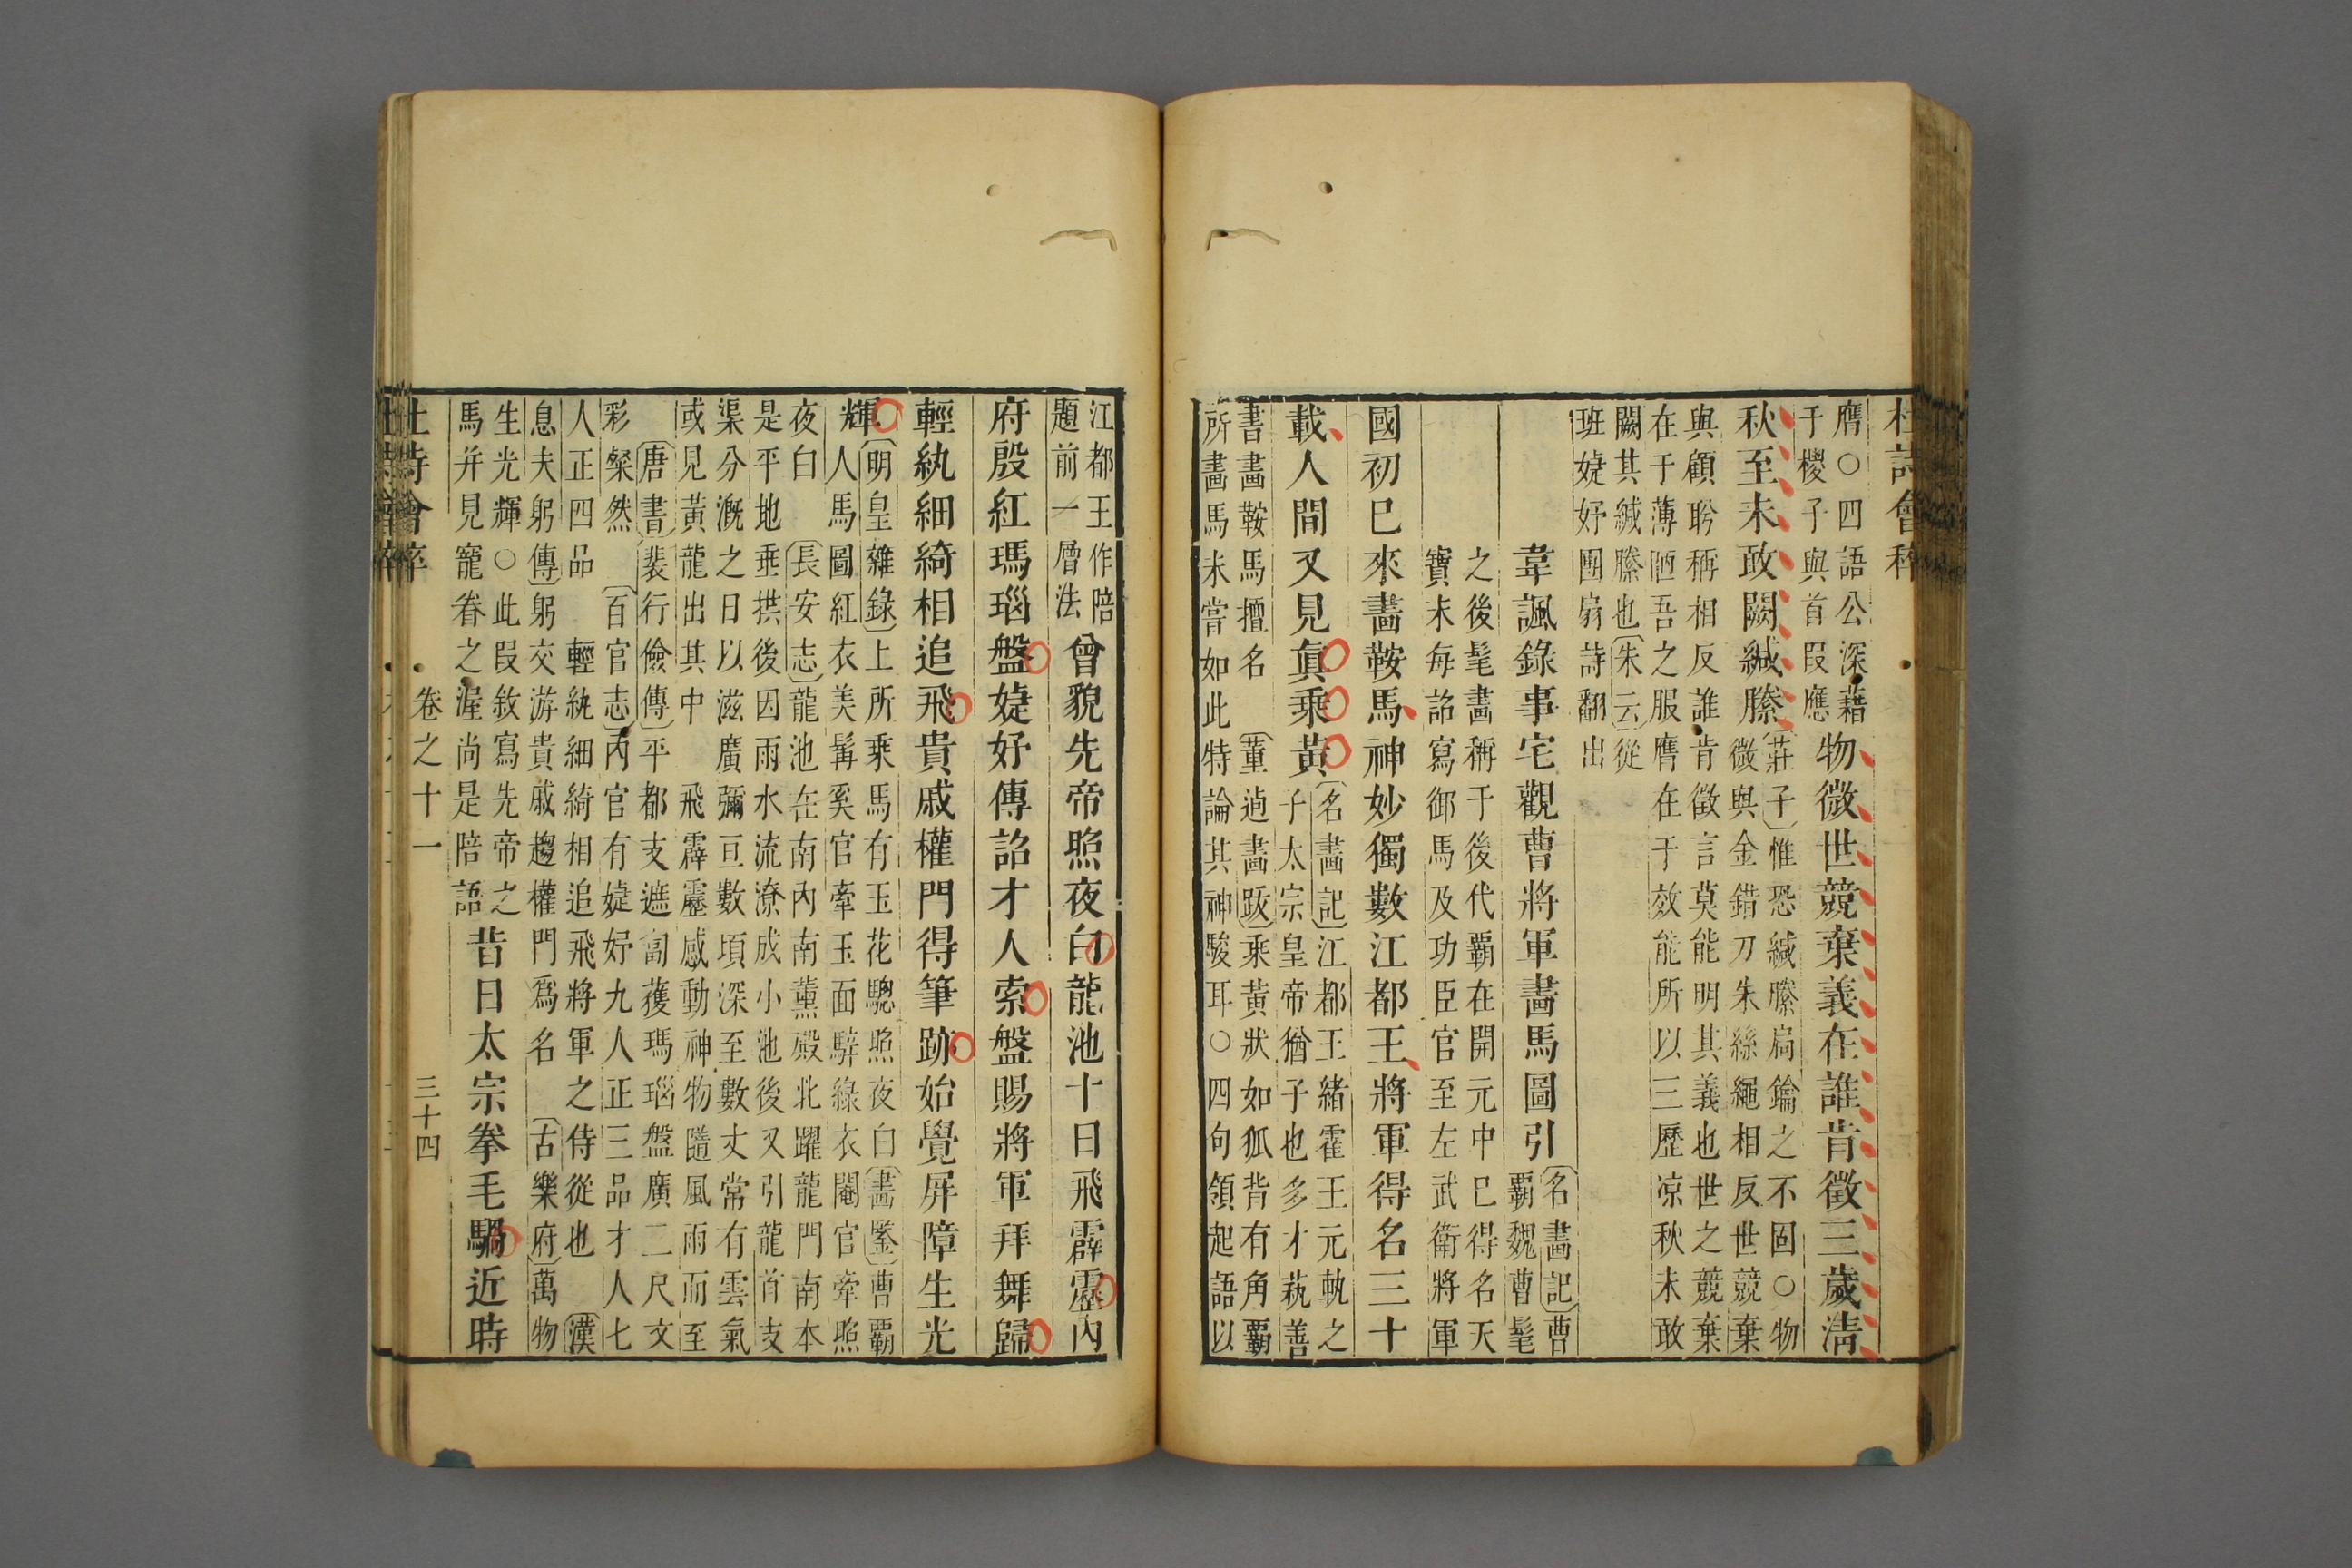 杜詩會稡
膺○四語公深藉
于樱子與首叚應
物微世競棄義在誰肯徵三歲淸
秋至未敢闕緘縢
莊子惟恐緘縢扃鐍之不固○物
微與金錯刀朱絲繩相反世競棄
與顧盻稱相反誰肯徵言莫能明其義也世之競棄
在于薄陋吾之服膺在于效能所以三歷凉秋未敢
闕其緘縢也朱云從
班婕妤團扇詩翻出
韋諷錄事宅觀曹將軍畵馬圖引
名畵記曹
覇魏曹髦
之後髦畵稱于後代覇在開元中已得名天
寶末每詔寫御馬及功臣官至左武衛將軍
國初已來畵鞍馬神妙獨數江都王將軍得名三十
載人間又見眞乘黄
名畵記江都王緒霍王元軌之
子太宗皇帝猶子也多才蓺善
書畵鞍馬擅名
董逌畵跋乘黄狀如狐背有角覇
所畵馬未嘗如此特論其神駿耳○四句領起語以
江都王作陪
題前一層法
曾貌先帝照夜白龍池十日飛霹靂內
府殷紅瑪瑙盤婕妤傳詔才人索盤賜將軍拜舞歸
輕紈細綺相追飛貴戚權門得筆跡始覺屏障生光
輝
明皇雜錄上所乘馬有玉花驄照夜白畵鑒曹覇
人馬圖紅衣美髯奚官牽玉面騂綠衣閹官牽照
夜白
長安志龍池在南內南薰殿北躍龍門南本
是平地垂拱後因雨水流潦成小池後又引龍首支
渠分漑之日以滋廣彌亘數頃深至數丈常有雲氣
或見黃龍出其中
飛霹靂感動神物隨風雨而至
唐書裴行儉傳平都支遮匐獲瑪瑙盤廣二尺文
彩粲然
百官志內官有婕妤九人正三品才人七
人正四品
輕紈細綺相追飛將軍之侍從也
漢
息夫躬傳躬交游貴戚趨權門爲名
古樂府萬物
生光輝○此叚敘寫先帝之
馬并見寵眷之渥尚是陪語
昔日太宗拳毛騧近時
卷之十一
三十四